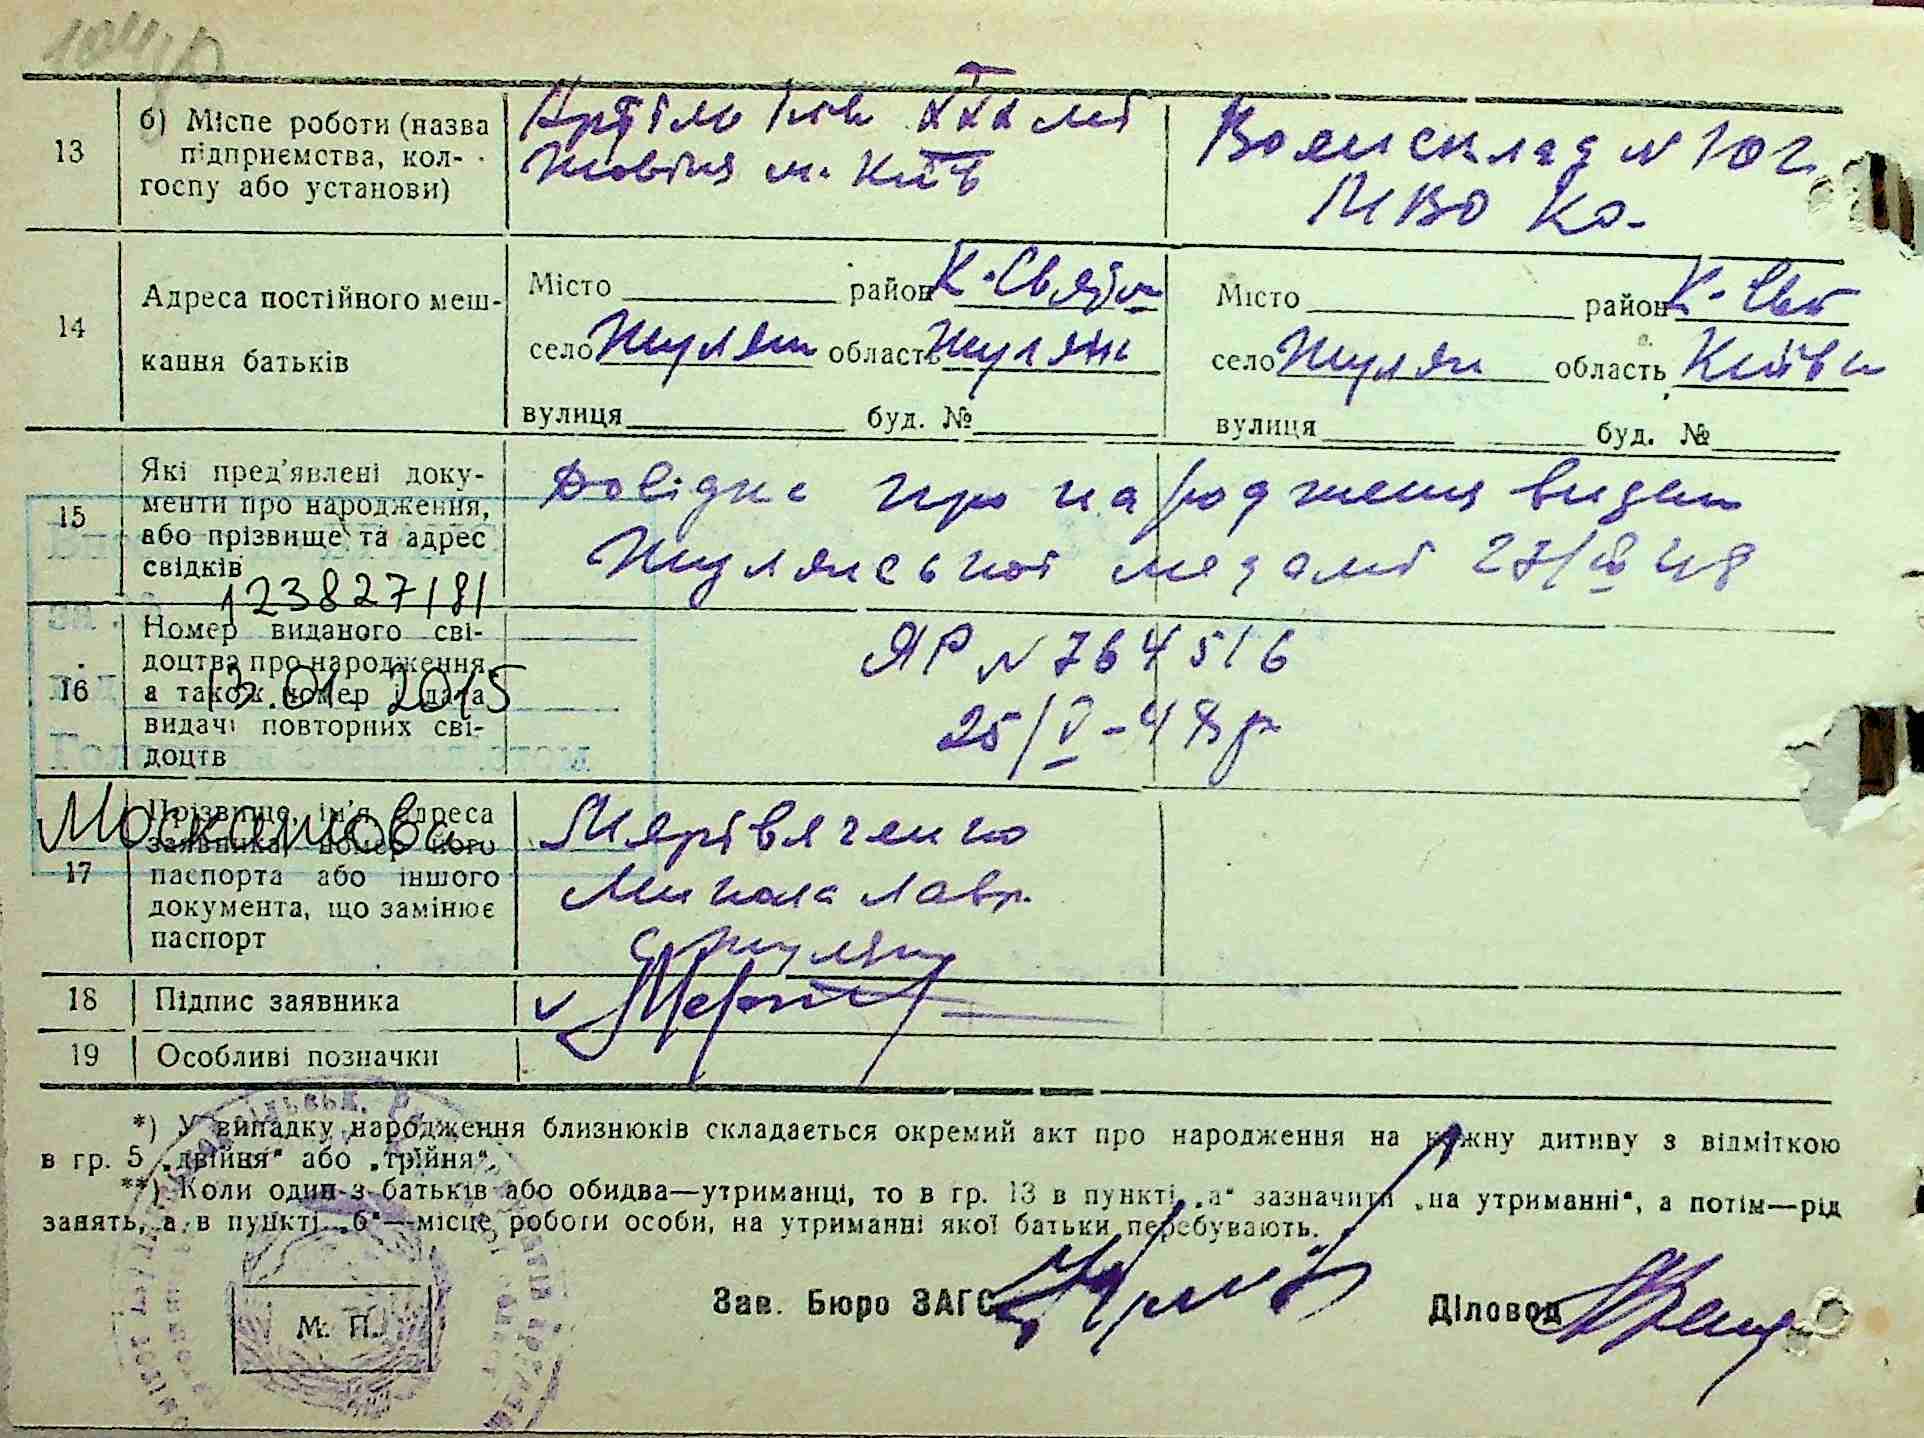 13
б) Місце роботи (назва
підприємства, кол-
госпу або установи)
Артіль ім. ХХХ літ
Жовтня м. Київ
Воєнсклад N 102
КВО
14
Адреса постійного меш-
кання батьків
Місто район К-Свят
село Жуляни область
вулиця буд. №
Місто район К-Свят
село Жуляни область Київськ
вулиця буд. №
15
Які пред'явлені доку-
менти про народження,
або прізвище та адрес
свідків
Довідка про народження видан
Жулянської 27/ 48
123827181
16
Номер виданого сві-
доцтва про народження
а також номер і дата
видачі повторних сві-
доцтв
13.01.2015
ЯР N 764516
25/V-48 р
17
Прізвище, ім'я, адреса
заявника, номер його
паспорта або іншого
документа, що замінює
паспорт
Микола Лавр.
с Жуляни
18
Підпис заявника
19
Особливі позначки
*) У випадку народження близнюків складається окремий акт про народження на кожну дитину з відміткою
в гр. 5 „двійня" або „трійня".
**) Коли один з батьків або обидва—утриманці, то в гр. 13 в пункті „а" зазначити „на утриманні", а потім—рід
занять, а в пункті „б"—місце роботи особи, на утриманні якої батьки перебувають.
Зав. Бюро ЗАГС
Діловод
М. П.